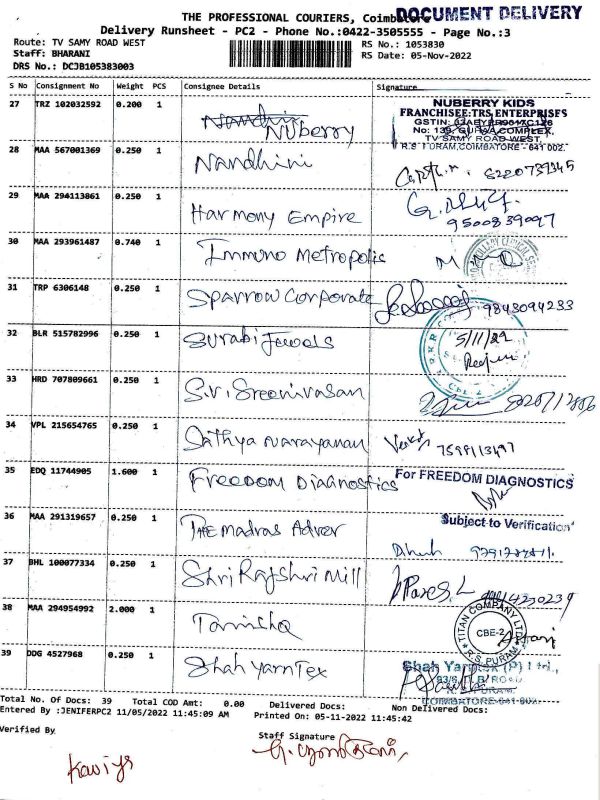 DOCUMENT DELIVERY
THE PROFESSIONAL COURIERS, Coimbatore
Delivery Runsheet - PC2 - Phone No.:0422-3505555 - Page No.:3
Route: TV SAMY ROAD WEST
RS No.: 1053830
Staff: BHARANI
RS Date: 05-Nov-2022
DRS No.: DCJB105383003
S No Consignment No Weight PCS Consignee Details Signature
27 TRZ 102032592 0.200 1 Nuberry
NUBERRY KIDS
FRANCHISEE:TRS ENTERPRISES
TV SAMY ROAD WEST,
R.S PURAM,COIMBATORE - 641 002.
28 MAA 567001369 0.250 1 Nandhini
29 MAA 294113861 0.250 1 Harmony Empire
9500839097
30 MAA 293961487 0.740 1 Immuno Metropolis
31 TRP 6306148 0.250 1 Sparrow Corporate 9843094233
32 BLR 515782996 0.250 1 Surabi Jewels
5/11/22
33 HRD 707809661 0.250 1 S.V. Sreenivasan
34 VPL 215654765 0.250 1 Sathya Narayanan
35 EDQ 11744905 1.600 1 Freedom Diagnostics
For FREEDOM DIAGNOSTICS
36 MAA 291319657 0.250 1 The Madras Adver
Subject to Verification
37 BHL 100077334 0.250 1 Shri Rajshri Mill
38 MAA 294954992 2.000 1 Tanishq
TITAN COMPANY LTD
CBE-2
R.S. PURAM
39 DDG 4527968 0.250 1 Shah Yarn Tex
Shah Yarntex (P) Ltd.,
R.S. PURAM
COIMBATORE-641 002.
Total No. Of Docs: 39 Total COD Amt: 0.00 Delivered Docs: Non Delivered Docs:
Entered By :JENIFERPC2 11/05/2022 11:45:09 AM Printed On: 05-11-2022 11:45:42
Verified By
Staff Signature